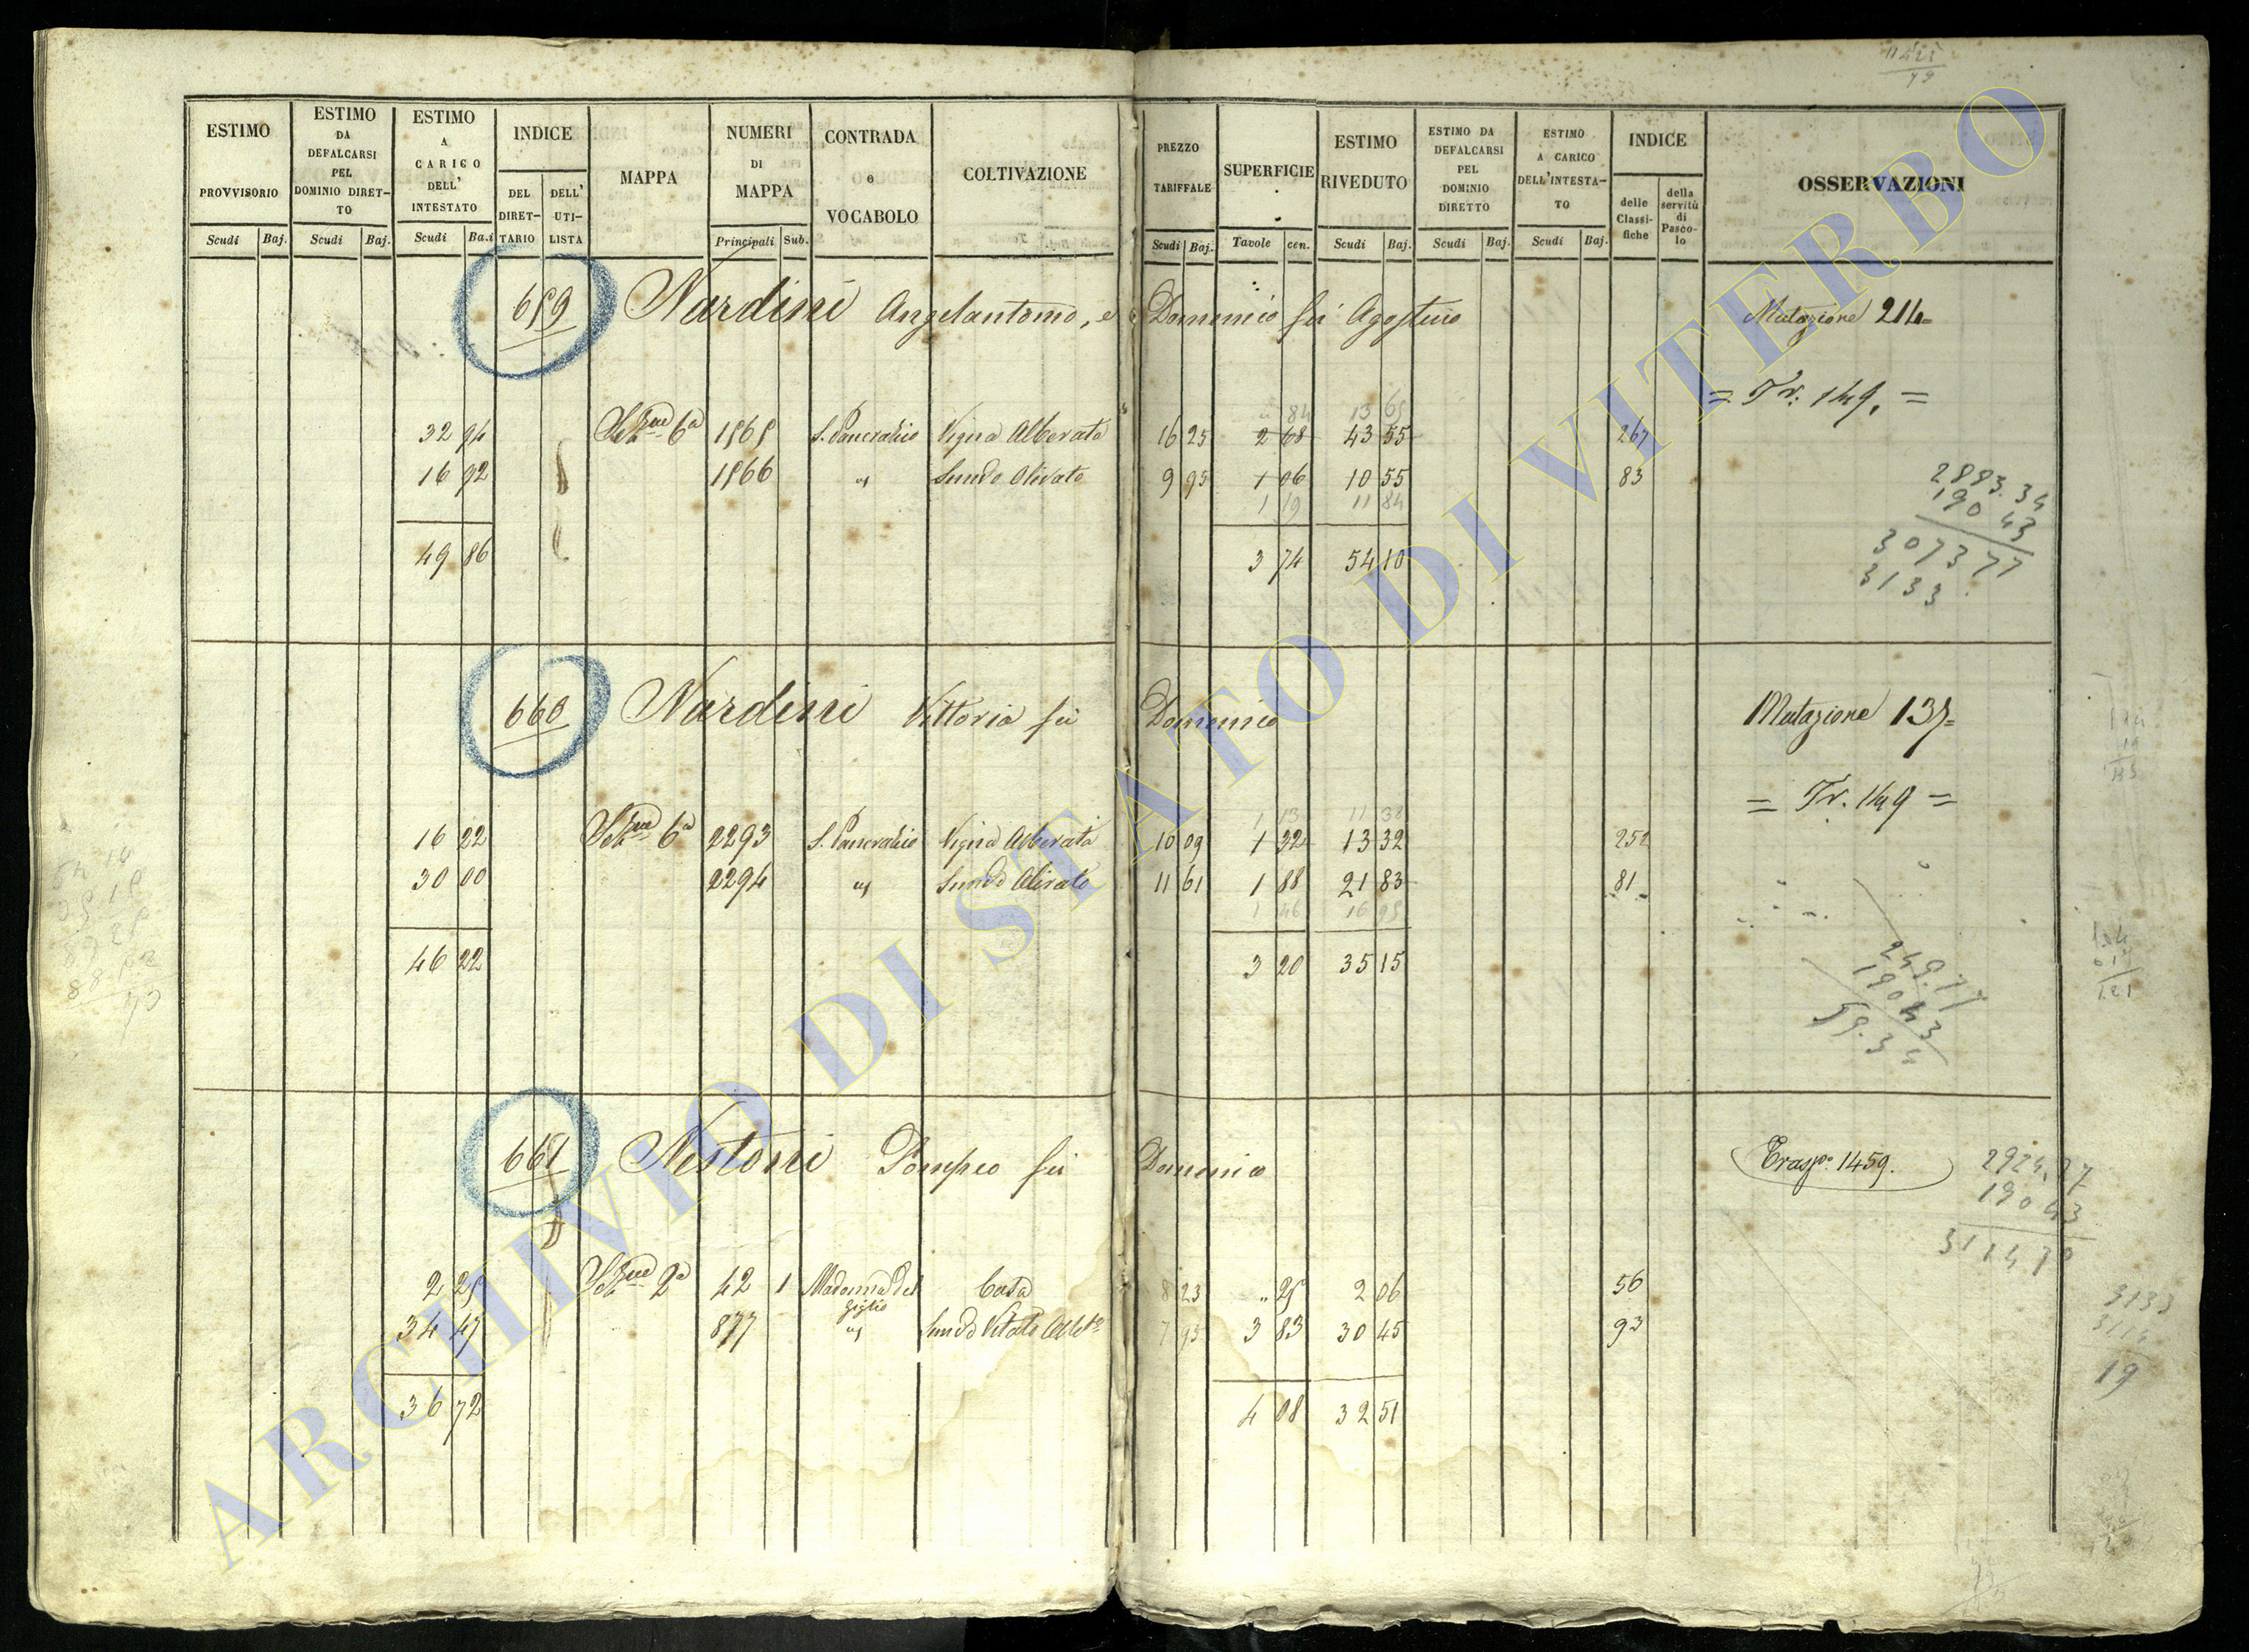 ESTIMO PROVVISORIO Scudi Baj.
ESTIMO DA DEFALCARSI PEL DOMINIO DIRET-TO Scudi Baj.
ESTIMO A CARICO DELL' INTESTATO Scudi Ba.i
INDICE DEL DIRET-TARIO DELL' UTI-LISTA
MAPPA
NUMERI DI MAPPA Principali Sub.
CONTRADA o VOCABOLO
COLTIVAZIONE
PREZZO TARIFFALE Scudi Baj.
SUPERFICIE Tavole cen.
ESTIMO RIVEDUTO Scudi Baj.
ESTIMO DA DEFALCARSI PEL DOMINIO DIRETTO Scudi Baj.
ESTIMO A CARICO DELL'INTESTA-TO Scudi Baj.
INDICE delle Classi-fiche della servitù di Pasco-lo
OSSERVAZIONI
659 Nardini Angelantonio, e Domenico fu Agostino Mutazione 214=
= Tr. 149. =
84 13 65
32 94 Sez.ne 6a 1565 S. Pancrazio Vigna Alberata 16 25 2 68 43 55 267
16 92 1566 " Sem.vo Olivato 9 95 1 06 10 55 83
1 19 11 84
49 86 3 74 54 10
2883.34
190 43
3073 77
3133
660 Nardini Vittoria fu Domenico Mutazione 135=
= Tr. 149 =
1 13 11 38
16 22 Sez.ne 6a 2293 S. Pancrazio Vigna Alberata 10 09 1 32 13 32 252
30 00 2294 " Sem.vo Olivato 11 61 1 88 21 83 81
1 46 16 95
46 22 3 20 35 15
249.77
190 43
59.34
661 Nestorii Pompeo fu Domenico Trasp.o 1459.
190 43
2 25 Sez.ne 2a 42 1 Madonna del Giglio Casa 8 23 " 25 2 06 56
34 47 877 " Sem.vo Vitato Alb.to 7 95 3 83 30 45 93
36 72 4 08 32 51
3133
3114
19
ARCHIVIO DI STATO DI VITERBO